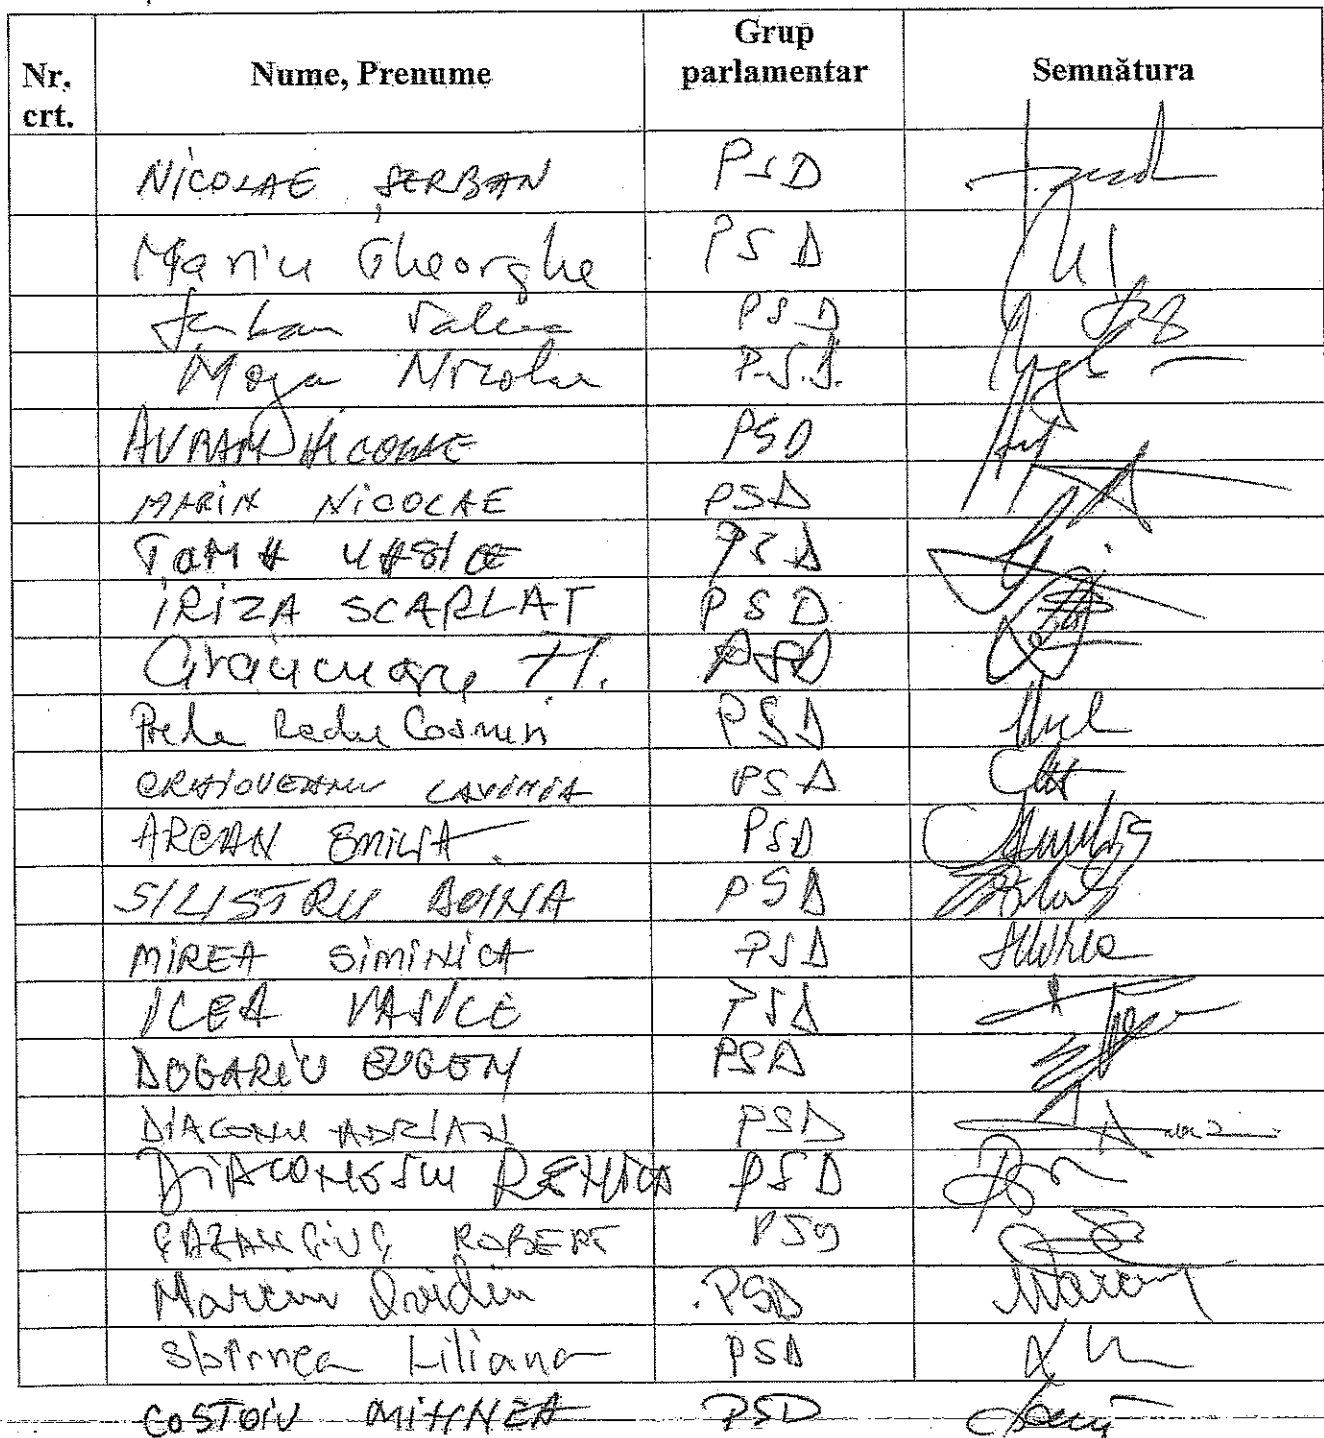 Nr. crt. Nume, Prenume Grup parlamentar Semnătura
NICOLAE ȘERBAN PSD
Marin Gheorghe PSD
Șerban Valeca PSD
Moga Nicolae P.S.D.
AVRAM NICOLAE PSD
MARIN NICOLAE PSD
TOMA VASILE PSD
IRIZA SCARLAT PSD
H. PSD
Preda Radu Cosmin PSD
CRAIOVEANU LAVINIA PSD
ARCAN EMILIA PSD
SILISTRU DOINA PSD
MIREA SIMINICA PSD
ILEA VASILE PSD
DOGARIU EUGEN PSD
DIACONU ADRIAN PSD
DIACONESCU RENICA PSD
CAZANCIUC ROBERT PSD
Marciu Ovidiu PSD
Sbîrnea Liliana PSD
COSTOIU MIHNEA PSD